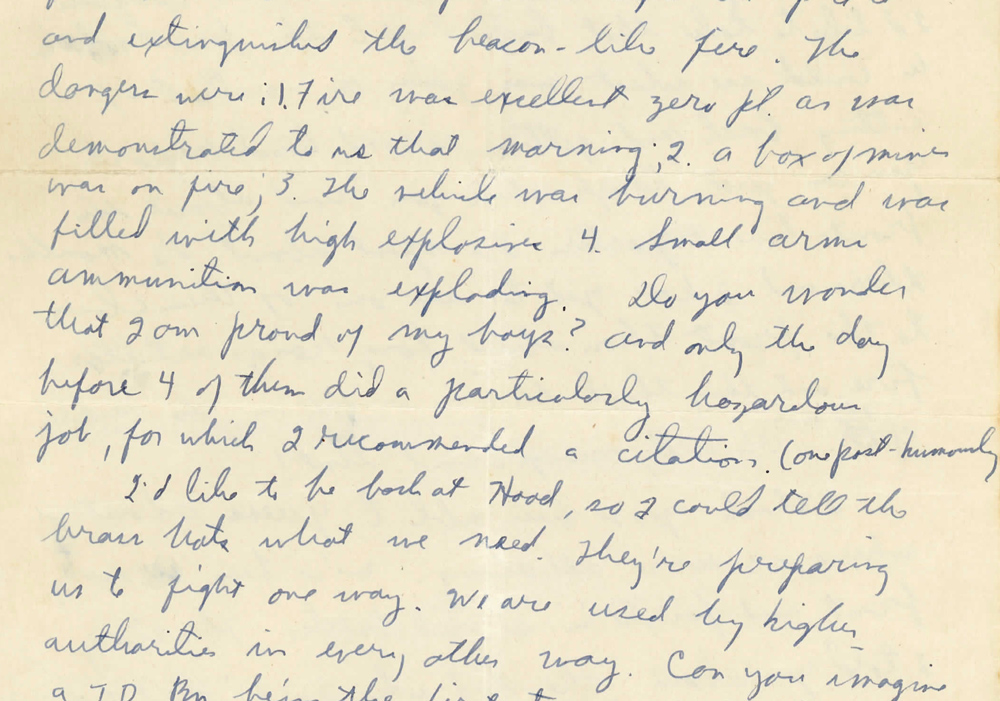 and extinguished the beacon-like fire. The
dangers were: 1. Fire was excellent zero pt. as was
demonstrated to us that morning; 2. a box of mines
was on fire; 3. The vehicle was burning and was
filled with high explosive 4. Small arms
ammunition was exploding. Do you wonder
that I am proud of my boys? and only the day
before 4 of them did a particularly hazardous
job, for which I recommended a citation. (one post-humously
I'd like to be back at Hood, so I could tell the
brass hats what we need. They're preparing
us to fight one way. We are used by higher
authorities in every other way. Can you imagine
a T.D. Bn being the first to